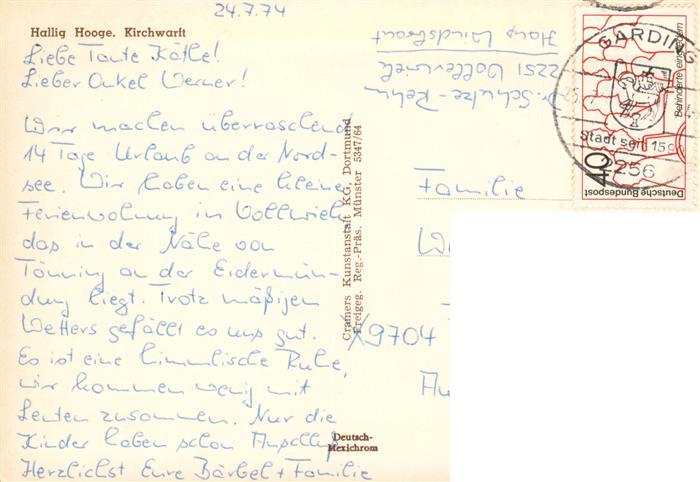 24.7.74
Hallig Hooge. Kirchwarft
Liebe Tante Käthe!
Lieber Onkel Werner!
Wir machen überraschend
14 Tage Urlaub an der Nord-
see. Wir haben eine kleine
Ferienwohnung in Vollerwiek
das in der Nähe von
Tönning an der Eidermün-
dung liegt. Trotz mäßigen
Wetters gefällt es uns gut.
Es ist eine himmlische Ruhe,
wir kommen wenig mit
Leuten zusammen. Nur die
Kinder haben schon Anschluß
Herzlichst Eure Bärbel + Familie
Cramers Kunstanstalt KG, Dortmund
Freigeg. Reg.-Präs. Münster 5347/64
Deutsch-
Mexichrom
Dr. Schulze-Rehm
2251 Vollerwiek
Haus Windsbraut
Familie
X9704
GARDING
Stadt seit 1590
2256
40
Deutsche Bundespost
Behinderte eingliedern